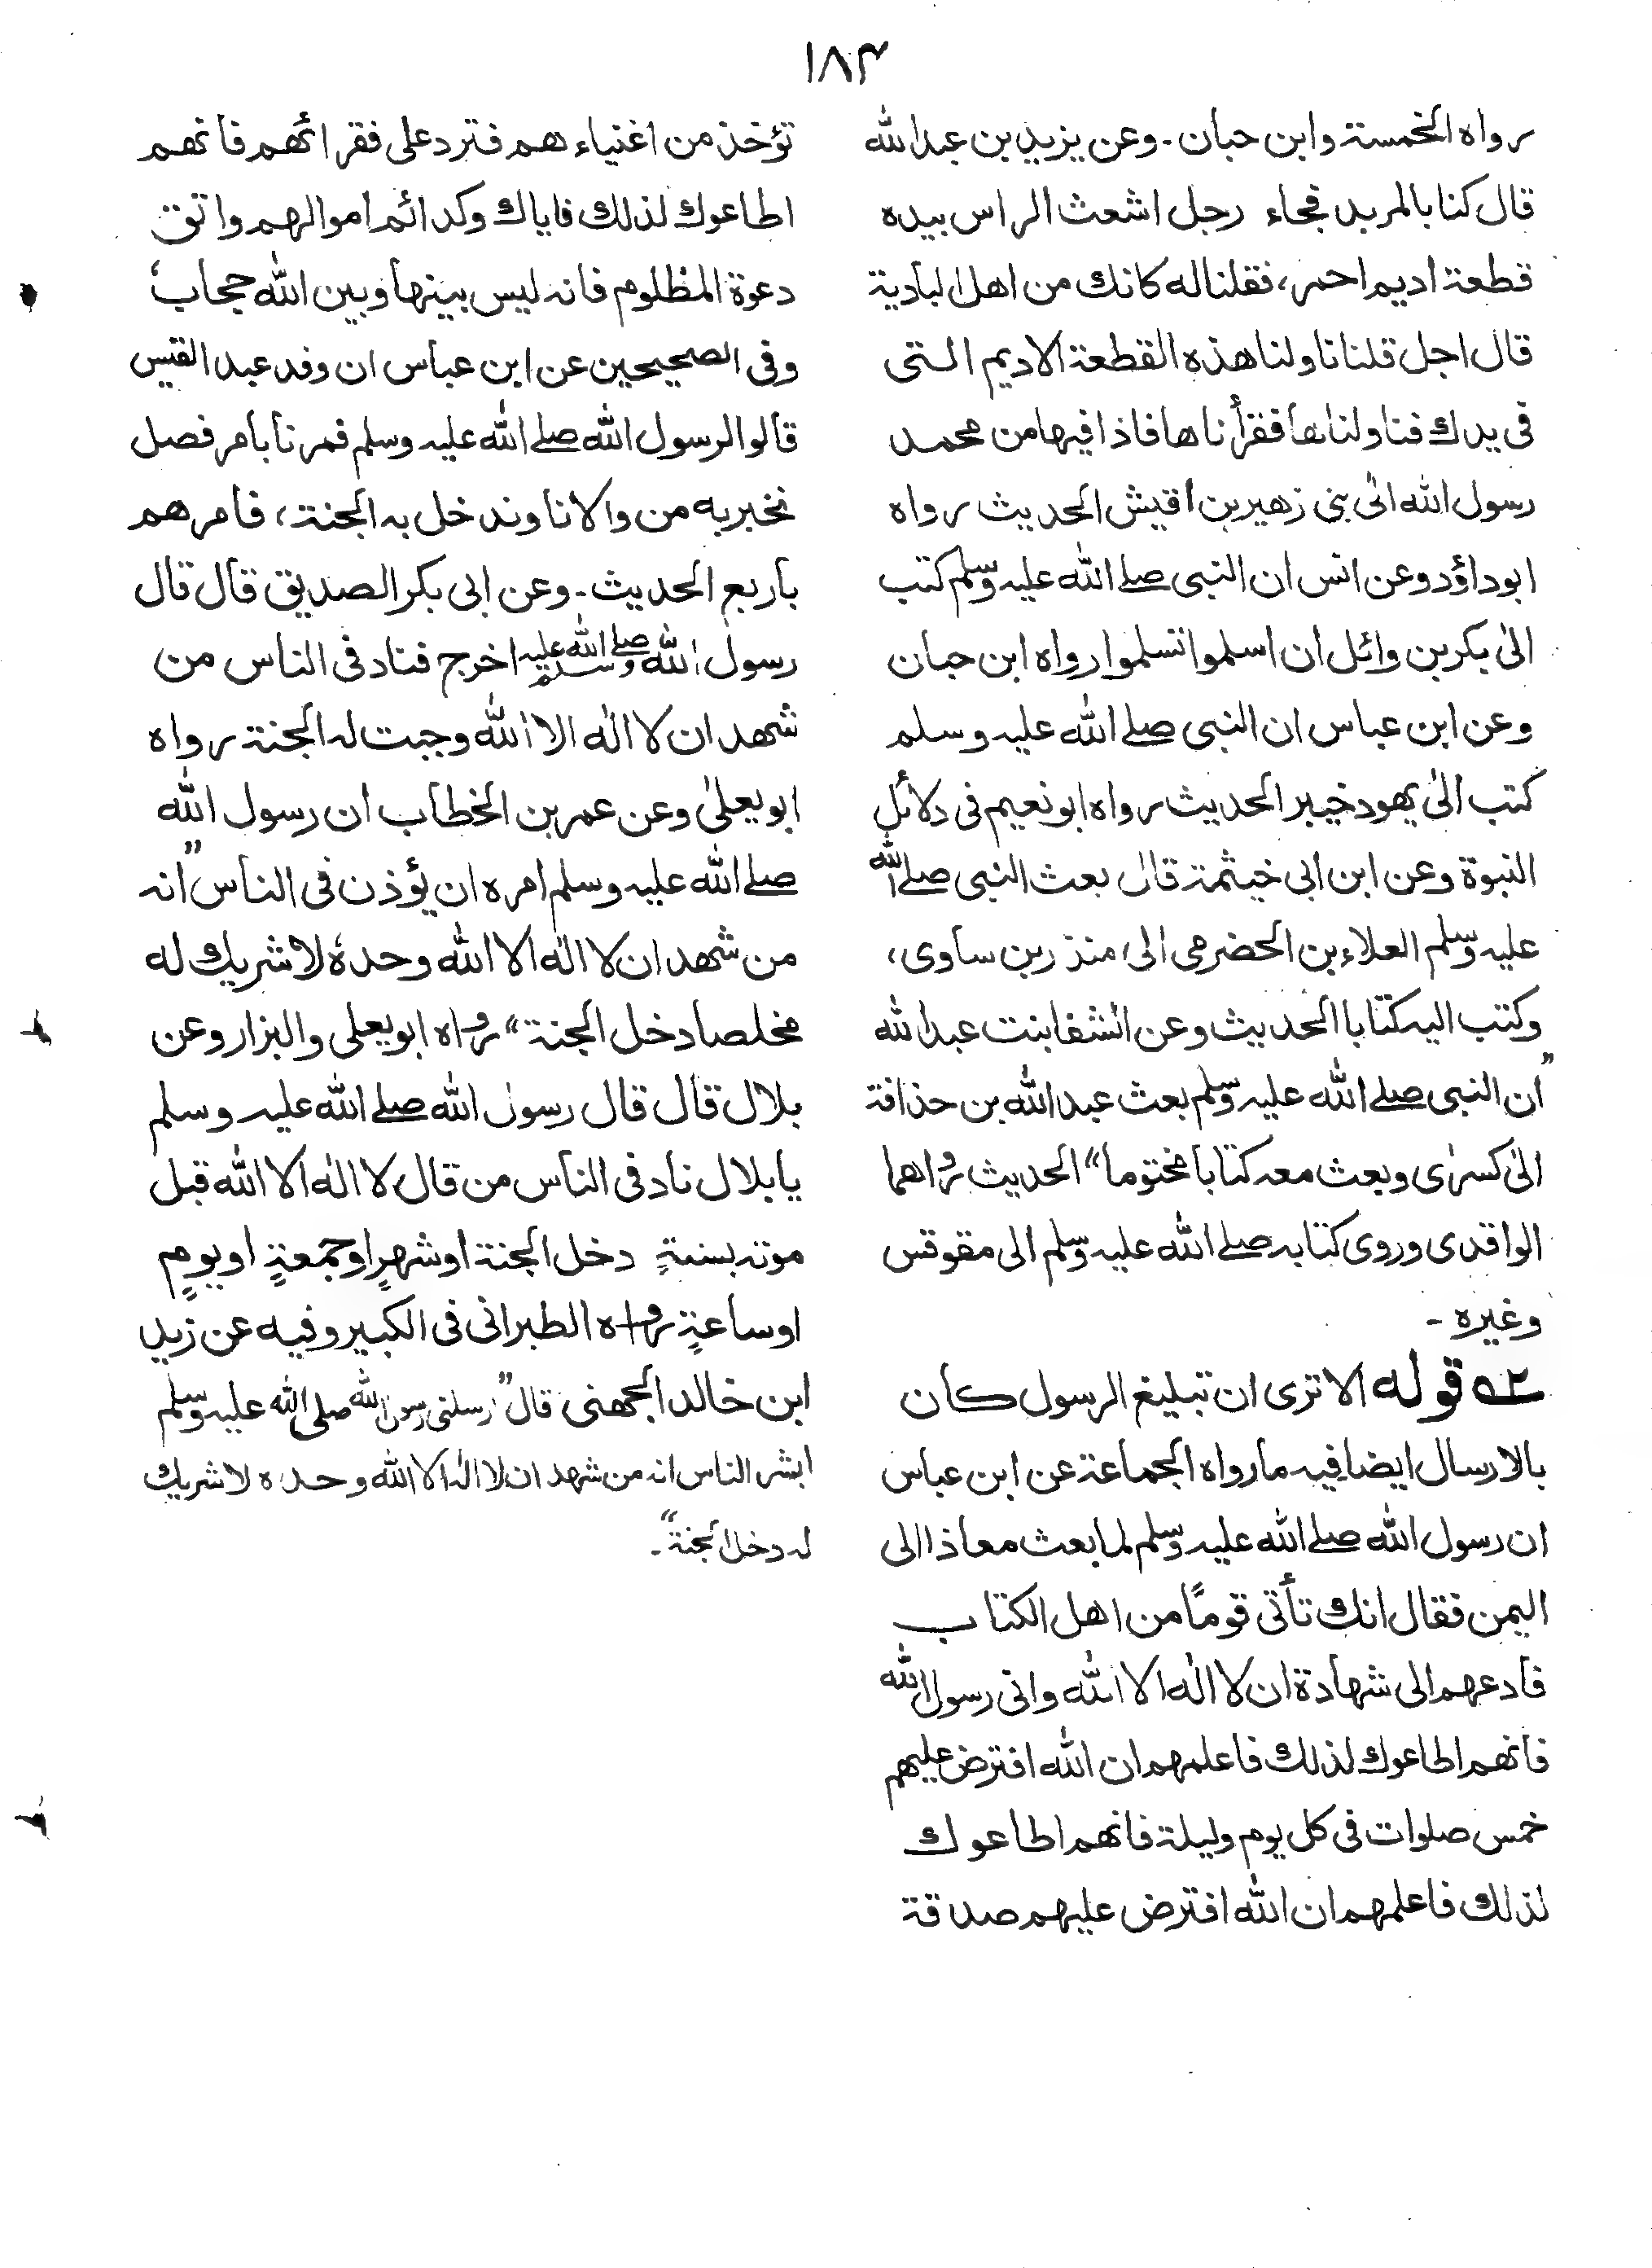 ۱۸۴
رواه الخمسة وابن حبان۔ وعن يزيد بن عبدالله
قال كنا بالمربد فجاء رجل اشعث الراس بيده
قطعة اديم احمر، فقلنا له كانك من اهل البادية
قال اجل قلنا ناولنا هذه القطعة الاديم التى
فى يدك فناولناها فقرأناها فاذا فيها من محمد
رسول الله الىٰ بنى زهير بن اقيش الحديث رواه
ابوداؤد وعن انس ان النبى صلے الله عليه وسلم كتب
الىٰ بكر بن وائل ان اسلموا تسلموا رواه ابن حبان
وعن ابن عباس ان النبى صلے الله عليه وسلم
كتب الىٰ يهود خيبر الحديث رواه ابونعيم فى دلائل
النبوة وعن ابن ابى خيثمة قال بعث النبى صلے الله
عليه وسلم العلاء بن الحضرمى الىٰ منذر بن ساوى،
وكتب اليه كتابا الحديث وعن الشفا بنت عبدالله
”ان النبى صلے الله عليه وسلم بعث عبد الله بن حذافة
الىٰ كسرٰى وبعث معه كتابا مختوما“ الحديث رواهما
الواقدى وروى كتابه صلے الله عليه وسلم الى مقوقس
وغيره ۔
۲ے قوله الا ترى ان تبليغ الرسول كان
بالارسال ايضا فيه ما رواه الجماعة عن ابن عباس
ان رسول الله صلے الله عليه وسلم لما بعث معاذا الى
اليمن فقال انك تأتى قومًا من اهل الكتاب
فادعهم الى شهادة ان لا الٰه الا الله وانى رسول الله
فانهم اطاعوك لذلك فاعلمهم ان الله افترض عليهم
خمس صلوات فى كل يوم وليلة فانهم اطاعوك
لذلك فاعلمهم ان الله افترض عليهم صدقة
تؤخذ من اغنياء هم فترد على فقرائهم فانهم
اطاعوك لذلك فاياك وكدائم اموالهم واتق
دعوة المظلوم فانه ليس بينها وبين الله حجابٌ
وفى الصحيحين عن ابن عباس ان وفد عبد القيس
قالوا لرسول الله صلے الله عليه وسلم فمرنا بامر فصل
نخبر به من والانا وندخل به الجنة، فامرهم
باربع الحديث۔ وعن ابى بكر الصديق قال قال
رسول الله صلے الله عليه وسلم اخرج فناد فى الناس من
شهد ان لا الٰه الا الله وجبت له الجنة رواه
ابويعلىٰ وعن عمر بن الخطاب ان رسول الله
صلے الله عليه وسلم امره ان يؤذن فى الناس ”انه
من شهد ان لا الٰه الا الله وحدهٗ لا شريك له
مخلصا دخل الجنة“ رواه ابويعلى والبزار وعن
بلال قال قال رسول الله صلے الله عليه وسلم
يا بلال ناد فى الناس من قال لا الٰه الا الله قبل
موته بسنةٍ دخل الجنة او شهرٍ او جمعةٍ او يومٍ
او ساعةٍ رواه الطبرانى فى الكبير وفيه عن زيد
ابن خالد الجهنى قال ”رسلنى رسول الله صلى الله عليه وسلم
ابشر الناس انه من شهد ان لا الٰه الا الله وحده لا شريك
له دخل الجنة“۔